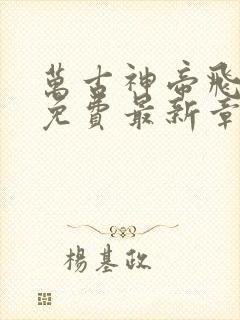 萬古神帝飛
免費最新章
楊基政